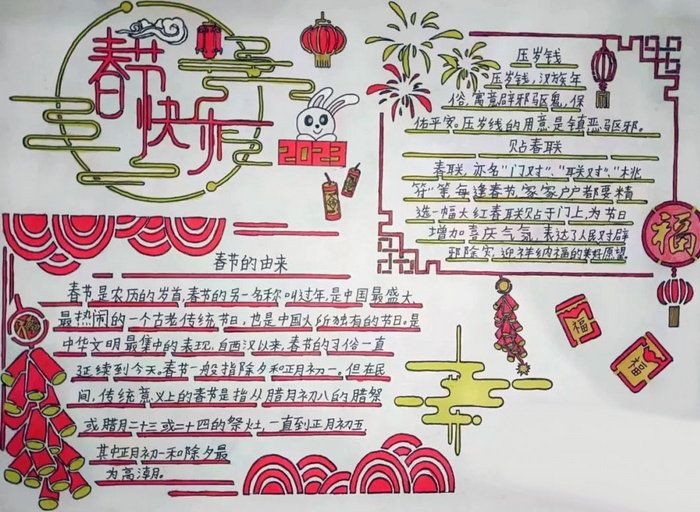 春节快乐
2023
压岁钱
压岁钱,汉族年
俗,寓意辟邪驱鬼,保
佑平安。压岁钱的用意是镇恶驱邪。
贴春联
春联,亦名"门对"、"联对"、"桃
符"等,每逢春节,家家户户都要精
选一幅大红春联贴于门上,为节日
增加喜庆气氛,表达了人民对辟
邪除灾、迎祥纳福的美好愿望
福
福
福
春节的由来
春节是农历的岁首,春节的另一名称叫过年,是中国最盛大、
最热闹的一个古老传统节日,也是中国人所独有的节日。是
中华文明最集中的表现,自西汉以来,春节的习俗一直
延续到今天。春节一般指除夕和正月初一。但在民
间,传统意义上的春节是指从腊月初八的腊祭
或腊月二十三或二十四的祭灶,一直到正月初五
其中正月初一和除夕最
为高潮。